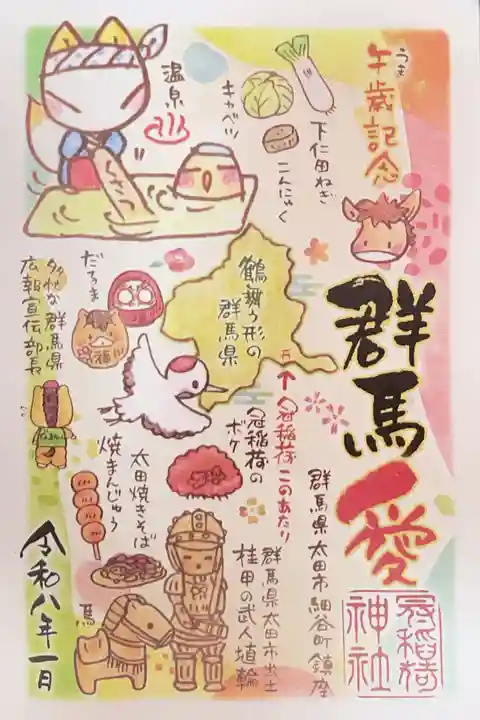 午歳記念
うま
群馬愛
群馬県太田市細谷町鎮座
冠稲荷
神社
下仁田ねぎ
こんにゃく
キャベツ
温泉
くさつ
鶴舞う形の
群馬県
↑冠稲荷このあたり
冠稲荷の
ボケ
だるま
福
多忙な群馬県
広報宣伝部長
太田焼きそば
焼まんじゅう
群馬県太田市出土
挂甲の武人埴輪
馬
令和八年一月